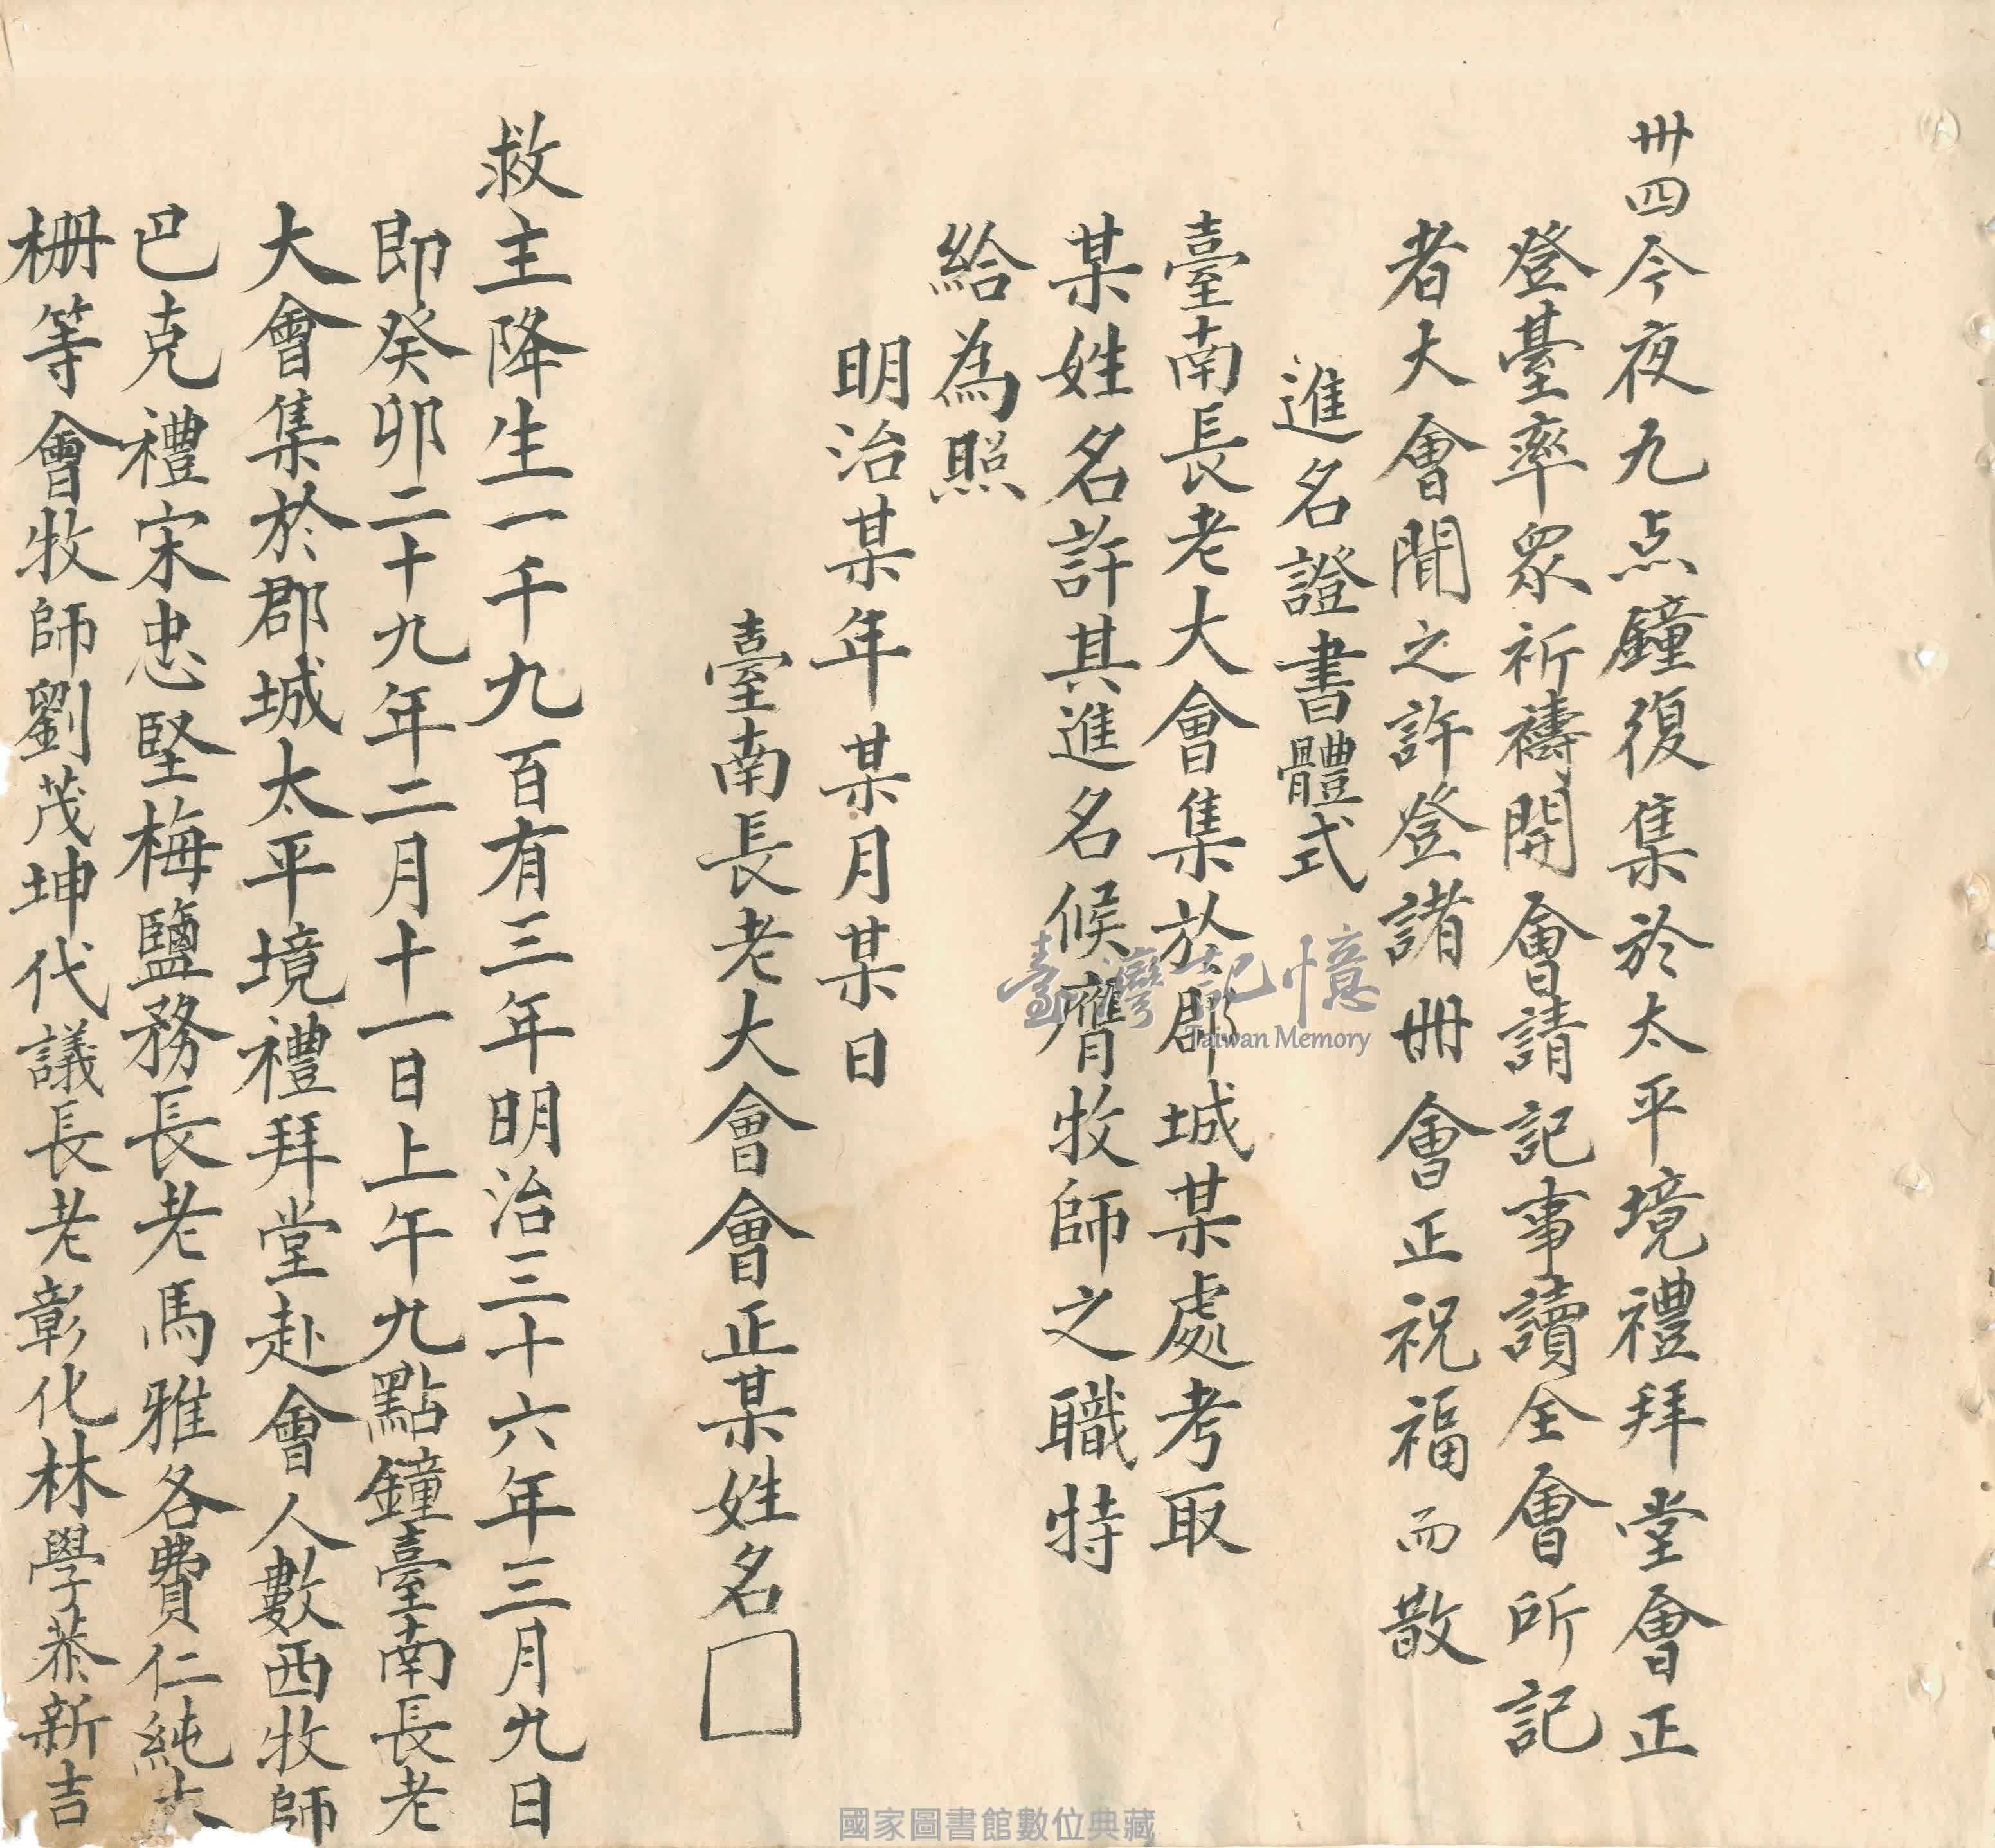 卅四今夜九点鐘復集於太平境禮拜堂會正
登臺率眾祈禱開會請記事讀全會所記
者大會聞之許登諸冊會正祝福而散
進名證書體式
臺南長老大會集於郡城某處考取
某姓名許其進名候膺牧師之職特
給為照
明治某年某月某日
臺南長老大會會正某姓名
救主降生一千九百有三年明治三十六年三月九日
即癸卯二十九年二月十一日上午九點鐘臺南長老
大會集於郡城太平境禮拜堂赴會人數西牧師
巴克禮宋忠堅梅鹽務長老馬雅各費仁純木
柵等會牧師劉茂坤代議長老彰化林學恭新吉
臺灣記憶
Taiwan Memory
國家圖書館數位典藏